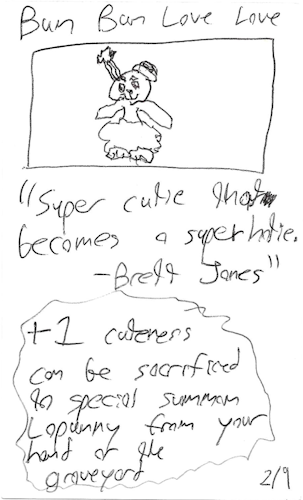 Bun Bun Love Love
"Super cutie that
becomes a superhotie.
-Brett Jones"
+1 cuteness
can be sacrificed
to special summon
Lopunny from your
hand or the
graveyard
2/9